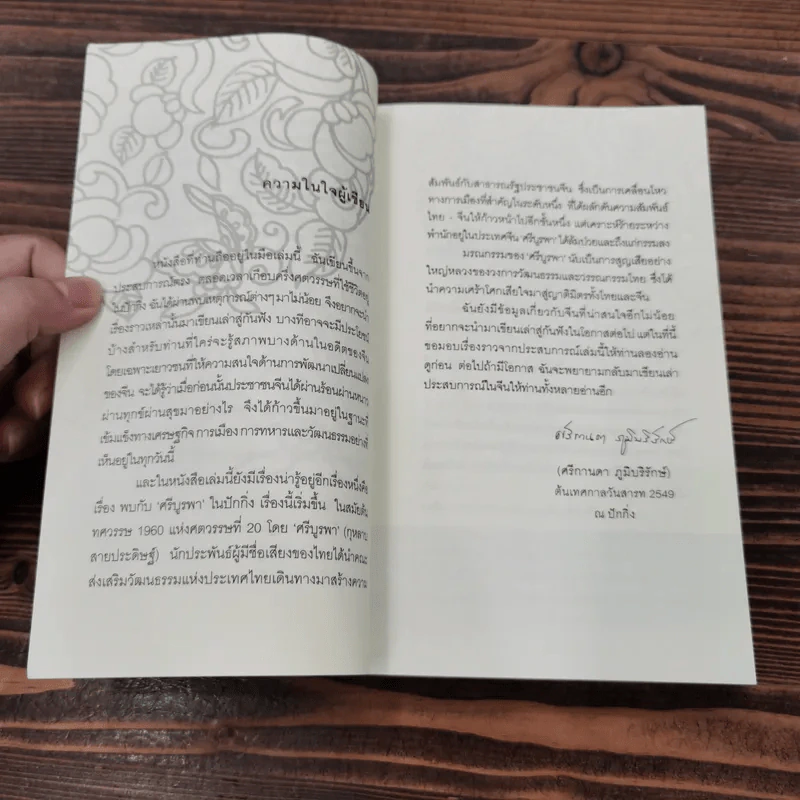 ความในใจผู้เขียน
หนังสือที่ท่านถืออยู่ในมือเล่มนี้ ฉันเขียนขึ้นจาก
ประสบการณ์ตรง ตลอดเวลาเกือบครึ่งศตวรรษที่ใช้ชีวิตอยู่
ฉันได้ผ่านพบเหตุการณ์ต่างๆ มาไม่น้อย จึงอยากจะนำ
เรื่องราวเหล่านั้นมาเขียนเล่าสู่กันฟัง บางทีอาจจะมีประโยชน์
บ้างสำหรับท่านที่ใคร่จะรู้สภาพบางด้านในอดีตของจีน
โดยเฉพาะเยาวชนที่ให้ความสนใจด้านการพัฒนาเปลี่ยนแปลง
ของจีน จะได้รู้ว่าเมื่อก่อนนั้นประชาชนจีนได้ผ่านร้อนผ่านหนาว
ผ่านทุกข์ผ่านสุขมาอย่างไร จึงได้ก้าวขึ้นมาอยู่ในฐานะที่
เข้มแข็งทางเศรษฐกิจ การเมือง การทหารและวัฒนธรรมอย่างที่
เห็นอยู่ในทุกวันนี้
และในหนังสือเล่มนี้ยังมีเรื่องน่ารู้อยู่อีกเรื่องหนึ่งคือ
เรื่อง พบกับ 'ศรีบูรพา' ในปักกิ่ง เรื่องนี้เริ่มขึ้น ในสมัยต้น
ทศวรรษ 1960 แห่งศตวรรษที่ 20 โดย 'ศรีบูรพา' (กุหลาบ
สายประดิษฐ์) นักประพันธ์ผู้มีชื่อเสียงของไทยได้นำคณะ
ส่งเสริมวัฒนธรรมแห่งประเทศไทยเดินทางมาสร้างความ
สัมพันธ์กับสาธารณรัฐประชาชนจีน ซึ่งเป็นการเคลื่อนไหว
ทางการเมืองที่สำคัญในระดับหนึ่ง ที่ได้ผลักดันความสัมพันธ์
ไทย - จีนให้ก้าวหน้าไปอีกขั้นหนึ่ง แต่เคราะห์ร้ายระหว่าง
พำนักอยู่ในประเทศจีน 'ศรีบูรพา' ได้ล้มป่วยและถึงแก่กรรมลง
มรณกรรมของ 'ศรีบูรพา' นับเป็นการสูญเสียอย่าง
ใหญ่หลวงของวงการวัฒนธรรมและวรรณกรรมไทย ซึ่งได้
นำความเศร้าโศกเสียใจมาสู่ญาติมิตรทั้งไทยและจีน
ฉันยังมีข้อมูลเกี่ยวกับจีนที่น่าสนใจอีกไม่น้อย
ที่อยากจะนำมาเขียนเล่าสู่กันฟังในโอกาสต่อไป แต่ในที่นี้
ขอมอบเรื่องราวจากประสบการณ์เล่มนี้ให้ท่านลองอ่าน
ดูก่อน ต่อไปถ้ามีโอกาส ฉันจะพยายามกลับมาเขียนเล่า
ประสบการณ์ในจีนให้ท่านทั้งหลายอ่านอีก
ศรีกานดา ภูมิบริรักษ์
(ศรีกานดา ภูมิบริรักษ์)
ต้นเทศกาลวันสารท 2549
ณ ปักกิ่ง